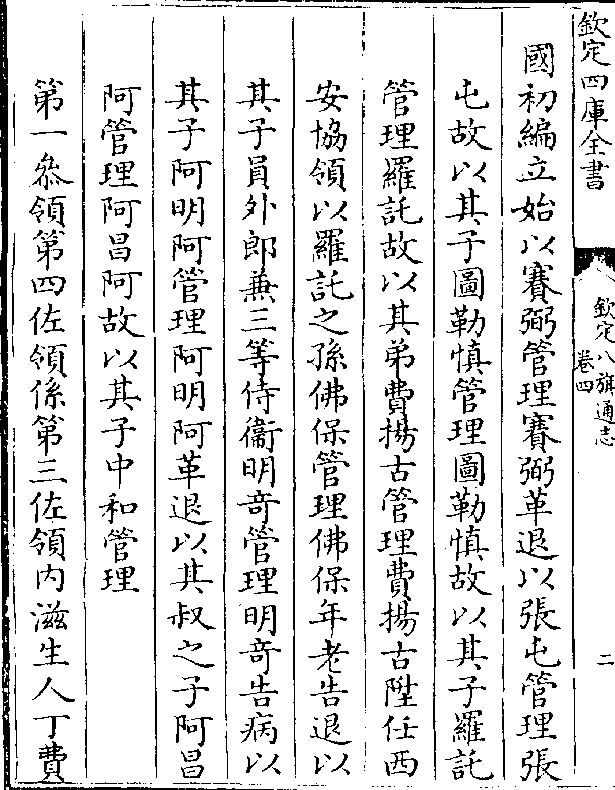 欽定四庫全書
欽定八旗通志
卷四
二
國初編立始以賽弼管理賽弼革退以張屯管理張
屯故以其子圖勒慎管理圖勒慎故以其子羅託
管理羅託故以其弟費揚古管理費揚古陞任西
安協領以羅託之孫佛保管理佛保年老告退以
其子員外郎兼三等侍衞明竒管理明竒告病以
其子阿明阿管理阿明阿革退以其叔之子阿昌
阿管理阿昌阿故以其子中和管理
第一叅領第四佐領係第三佐領内滋生人丁費